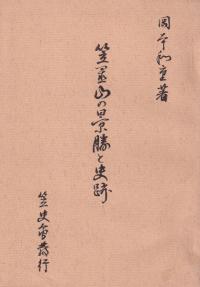 岡本和重著
笠置山の景勝と史蹟
笠史会発行